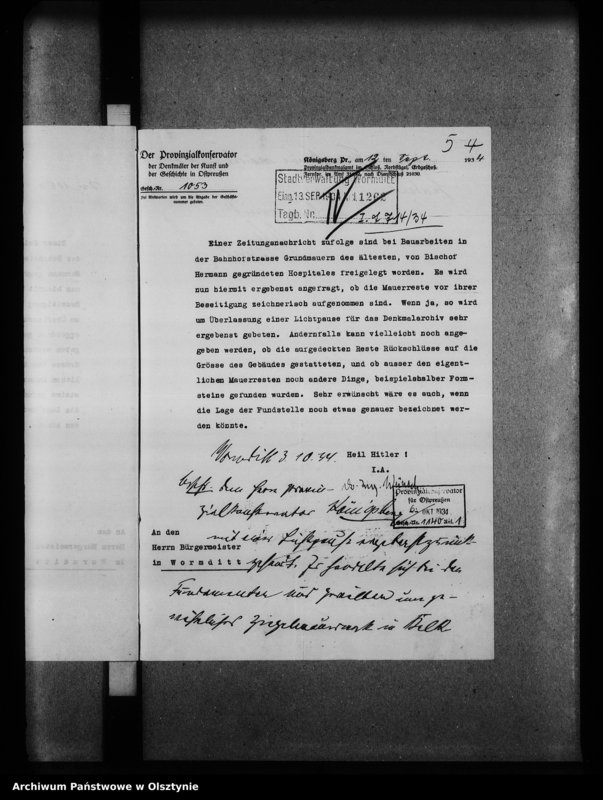 5 4
Der Provinzialkonservator
der Denkmäler der Kunst und
der Geschichte in Ostpreußen
Gesch.-Nr. 1053
Bei Antworten wird um die Angabe der Geschäfts-
nummer gebeten.
Königsberg Pr., am 12 ten Sept. 1934
Provinzialdenkmalamt im Schloß, Nordflügel, Erdgeschoß.
Stadtverwaltung Wormditt
Eing. 13. SEP. 1934
Tagb. Nr.
Einer Zeitungsnachricht zufolge sind bei Bauarbeiten in
der Bahnhofstrasse Grundmauern des ältesten, von Bischof
Hermann gegründeten Hospitales freigelegt worden. Es wird
nun hiermit ergebenst angefragt, ob die Mauerreste vor ihrer
Beseitigung zeichnerisch aufgenommen sind. Wenn ja, so wird
um Überlassung einer Lichtpause für das Denkmalarchiv sehr
ergebenst gebeten. Andernfalls kann vielleicht noch ange-
geben werden, ob die aufgedeckten Reste Rückschlüsse auf die
Grösse des Gebäudes gestatteten, und ob ausser den eigent-
lichen Mauerresten noch andere Dinge, beispielshalber Form-
steine gefunden wurden. Sehr erwünscht wäre es auch, wenn
die Lage der Fundstelle noch etwas genauer bezeichnet wer-
den könnte.
Wormditt 3.10.34.
Heil Hitler !
I.A.
dem Herrn Provin-
zialkonservator Königsberg
Provinzialkonservator
für Ostpreußen
OKT 1934
An den
Herrn Bürgermeister
in Wormditt
mit einer Lichtpause ergebenst zurück-
gesandt. Es handelte sich bei den
Fundamenten um
Ziegelmauerwerk in Kalk
Archiwum Państwowe w Olsztynie